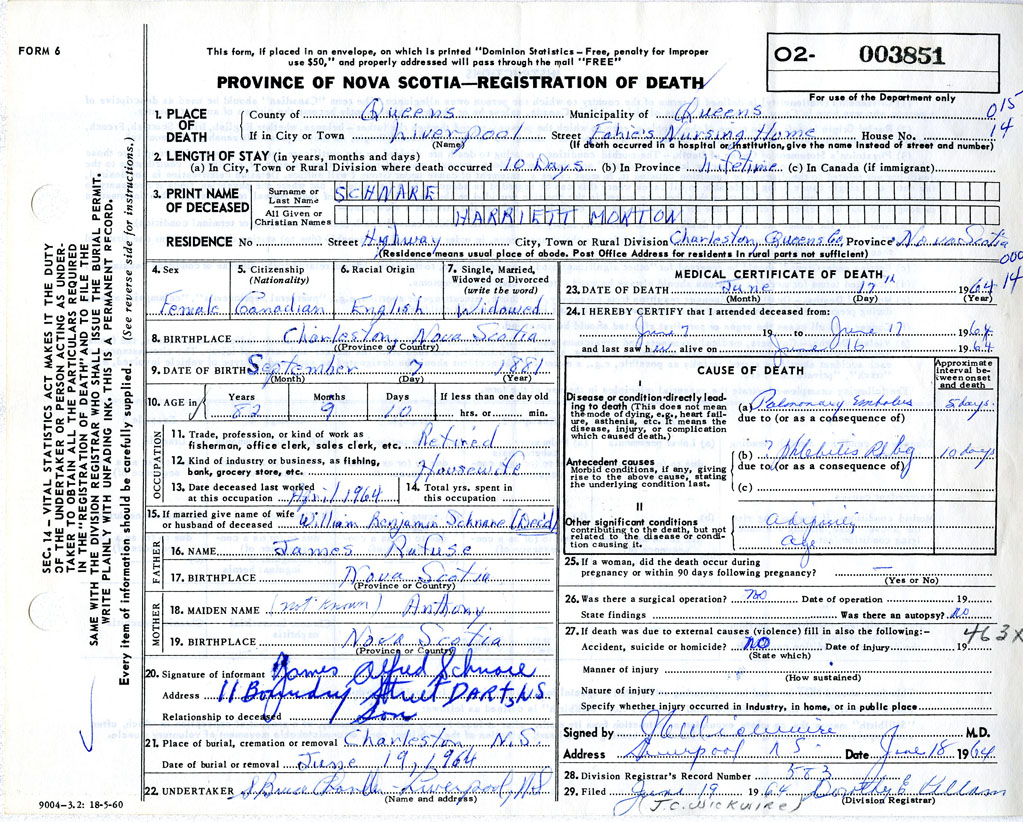 FORM 6
This form, if placed in an envelope, on which is printed "Dominion Statistics – Free, penalty for improper
use $50," and properly addressed will pass through the mail "FREE"
PROVINCE OF NOVA SCOTIA—REGISTRATION OF DEATH
O2- 003851
For use of the Department only
015
14
1. PLACE OF DEATH
County of Queens Municipality of Queens
If in City or Town Liverpool Street Fahie's Nursing Home House No.
(Name) (If death occurred in a hospital or institution, give the name instead of street and number)
2. LENGTH OF STAY (in years, months and days)
(a) In City, Town or Rural Division where death occurred 10 Days (b) In Province lifetime (c) In Canada (if immigrant)
3. PRINT NAME OF DECEASED
Surname or Last Name SCHNARE
All Given or Christian Names HARRIETT MORTON
RESIDENCE No Street Highway City, Town or Rural Division Charleston, Queens Co, Province Nova Scotia
(Residence means usual place of abode. Post Office Address for residents in rural parts not sufficient)
000
14
SEC. 14 – VITAL STATISTICS ACT MAKES IT THE DUTY
OF THE UNDERTAKER OR PERSON ACTING AS UNDER-
TAKER TO OBTAIN ALL THE PARTICULARS REQUIRED
IN THE "REGISTRATION OF DEATH" AND TO FILE THE
SAME WITH THE DIVISION REGISTRAR WHO SHALL ISSUE THE BURIAL PERMIT.
WRITE PLAINLY WITH UNFADING INK. THIS IS A PERMANENT RECORD.
Every item of information should be carefully supplied. (See reverse side for instructions.)
4. Sex
Female
5. Citizenship
(Nationality)
Canadian
6. Racial Origin
English
7. Single, Married,
Widowed or Divorced
(write the word)
Widowed
8. BIRTHPLACE Charleston, Nova Scotia
(Province or Country)
9. DATE OF BIRTH September 7 1881
(Month) (Day) (Year)
10. AGE in
Years Months Days If less than one day old
82 9 10 hrs. or min.
OCCUPATION
11. Trade, profession, or kind of work as
fisherman, office clerk, sales clerk, etc. Retired
12. Kind of industry or business, as fishing,
bank, grocery store, etc. Housewife
13. Date deceased last worked
at this occupation April 1964
14. Total yrs. spent in
this occupation
15. If married give name of wife
or husband of deceased William Benjamin Schnare (Dec'd)
FATHER
16. NAME James Rafuse
17. BIRTHPLACE Nova Scotia
(Province or Country)
MOTHER
18. MAIDEN NAME (not known) Anthony
19. BIRTHPLACE Nova Scotia
(Province or Country)
20. Signature of informant James Alfred Schnare
Address 11 Boundry Street DART, NS
Relationship to deceased Son
21. Place of burial, cremation or removal Charleston N.S.
Date of burial or removal June 19, 1964
22. UNDERTAKER Liverpool, N.S.
(Name and address)
9004–3.2: 18-5-60
MEDICAL CERTIFICATE OF DEATH
23. DATE OF DEATH June 17th 1964
(Month) (Day) (Year)
24. I HEREBY CERTIFY that I attended deceased from:
June 7 19 to June 17 1964
and last saw her alive on June 16 1964
CAUSE OF DEATH
Approximate
interval be-
tween onset
and death
I
Disease or condition directly lead-
ing to death (This does not mean
the mode of dying, e.g., heart fail-
ure, asthenia, etc. It means the
disease, injury, or complication
which caused death.)
(a) Pulmonary Embolus 5 days.
due to (or as a consequence of)
Antecedent causes
Morbid conditions, if any, giving
rise to the above cause, stating
the underlying condition last.
(b) ? Phlebitis Rt leg 10 days
due to (or as a consequence of)
(c)
II
Other significant conditions
contributing to the death, but not
related to the disease or condi-
tion causing it.
Adiposity
Age
25. If a woman, did the death occur during
pregnancy or within 90 days following pregnancy? —
(Yes or No)
26. Was there a surgical operation? No Date of operation 19
State findings Was there an autopsy? No
27. If death was due to external causes (violence) fill in also the following:–
463X
Accident, suicide or homicide? NO Date of injury 19
(State which)
Manner of injury
(How sustained)
Nature of injury
Specify whether injury occurred in Industry, in home, or in public place
Signed by J C Wickwire M.D.
Address Liverpool N.S. Date June 18 1964
28. Division Registrar's Record Number 583
29. Filed June 19 1964 Dorothy E Kellam
(J.C. WICKWIRE) (Division Registrar)